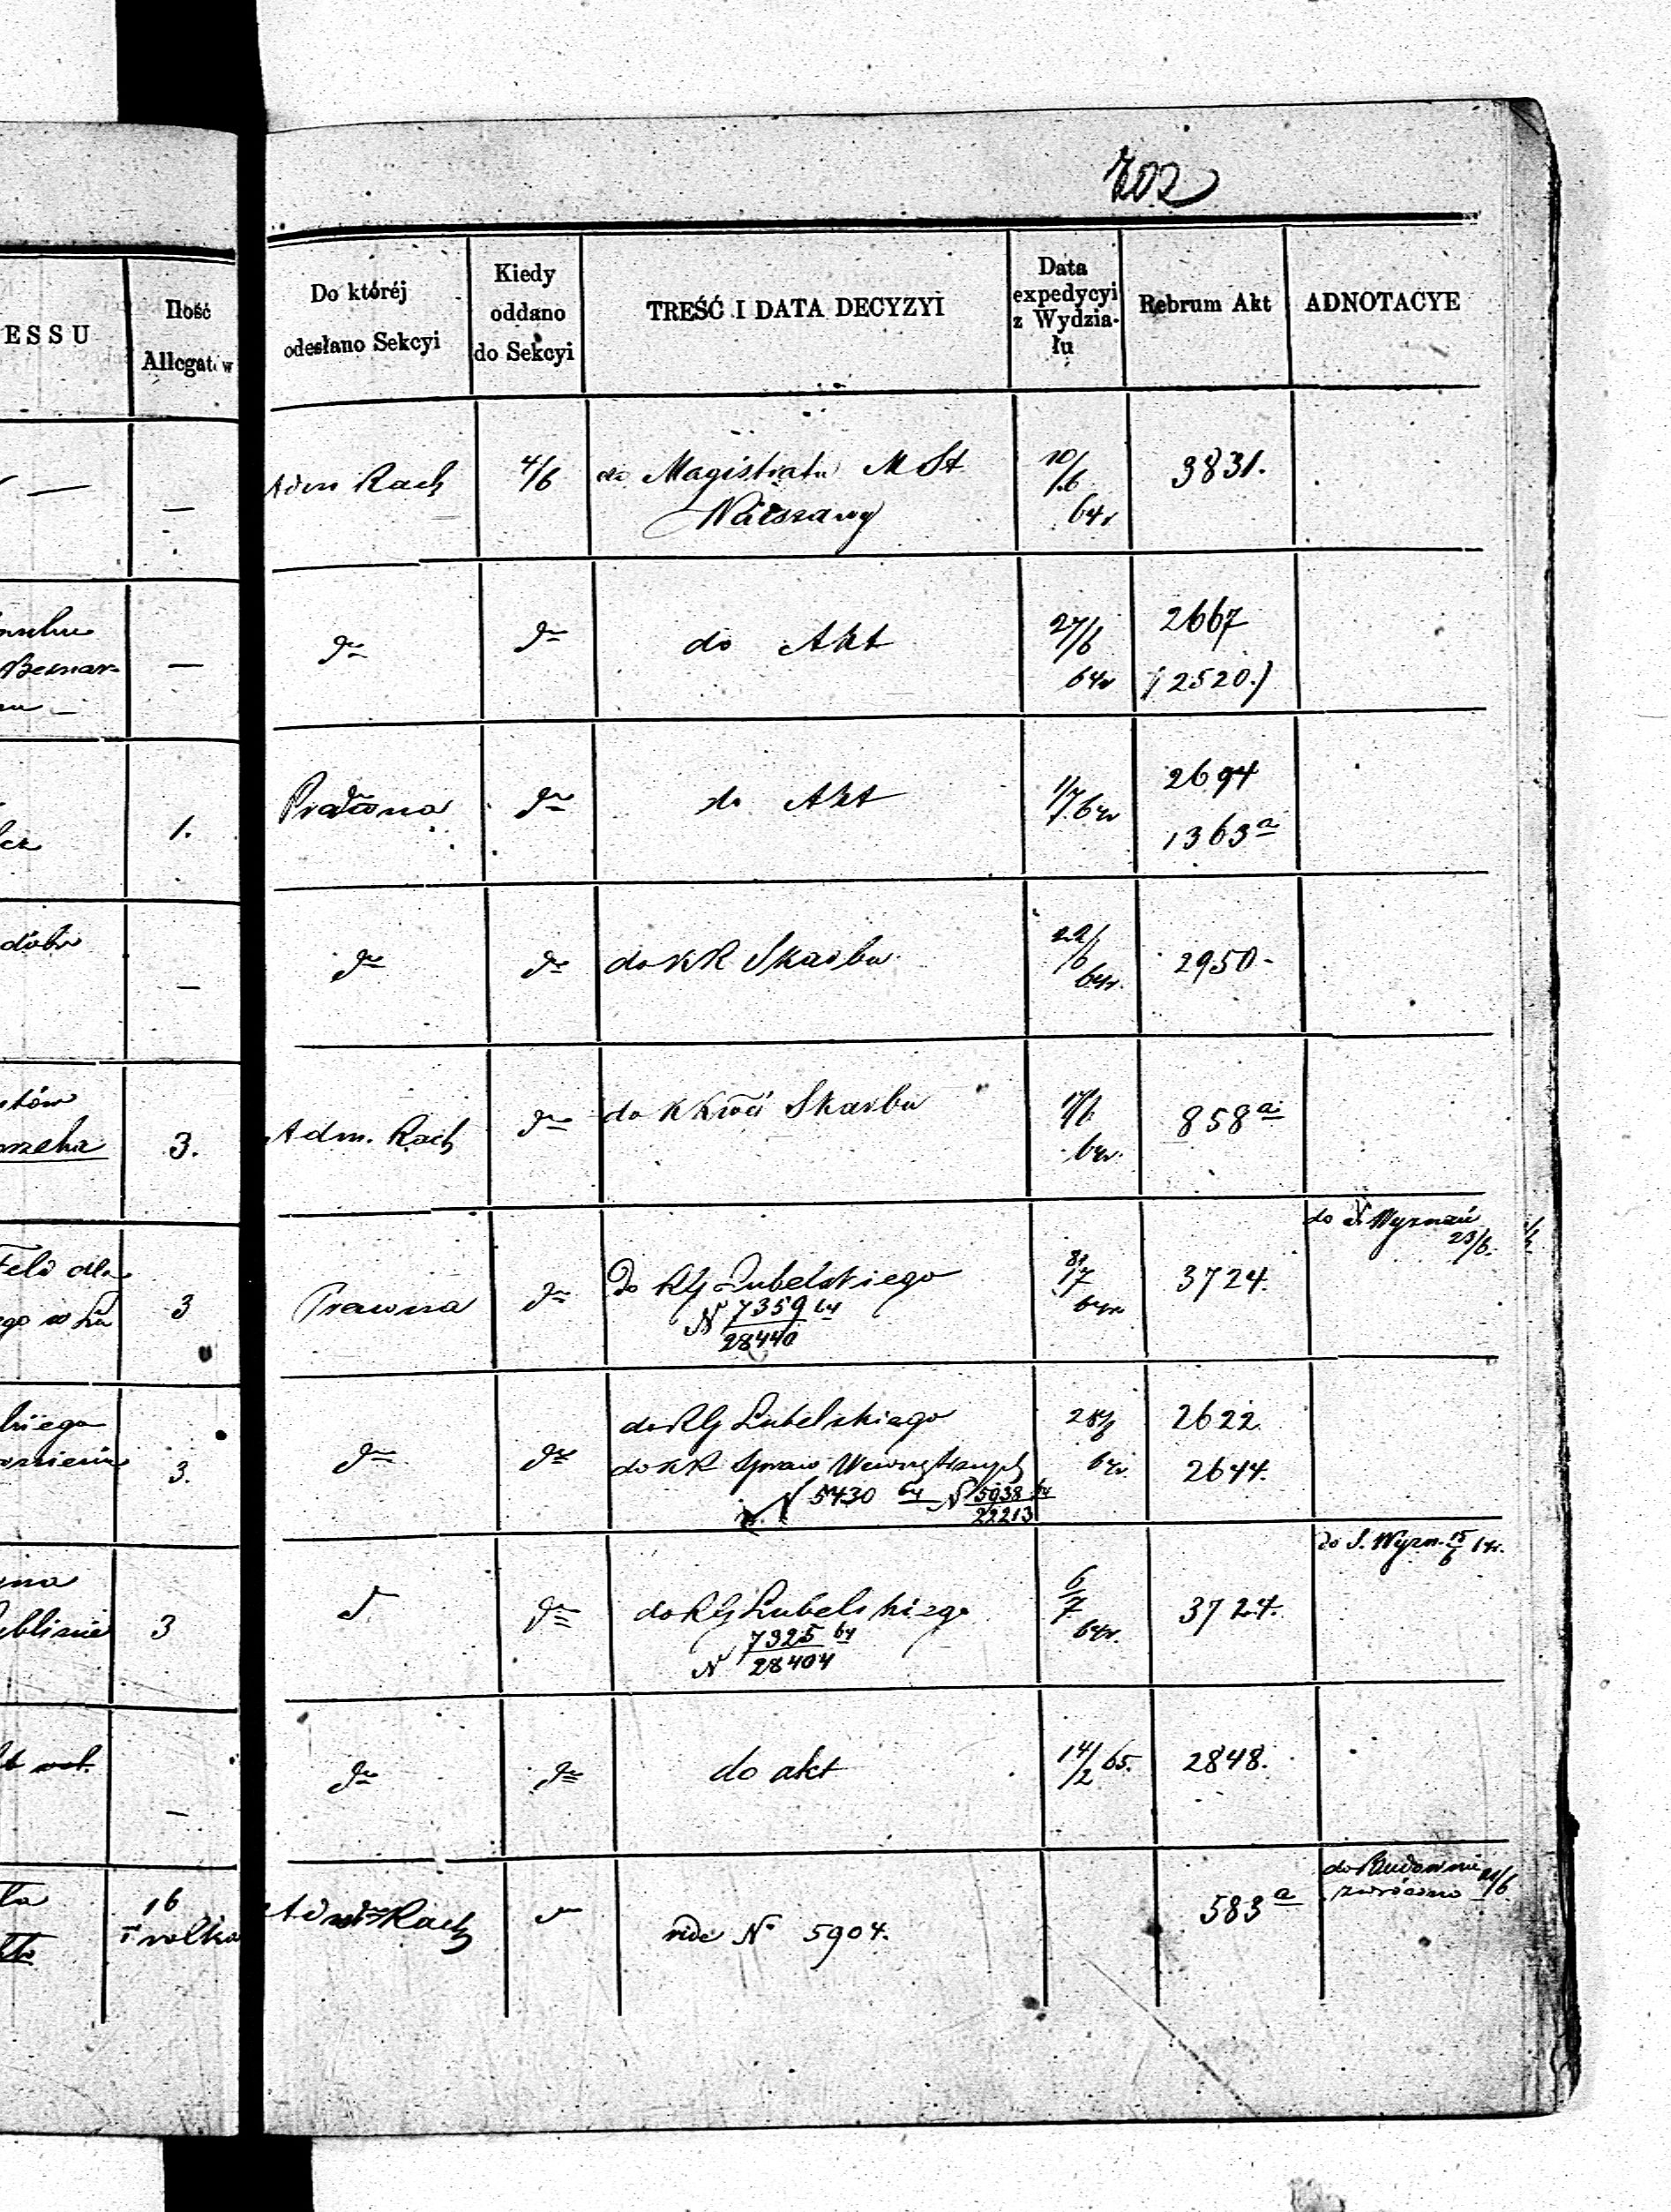 702
ESSU
Ilość
Allegatów
Do któréj
odesłano Sekcyi
Kiedy
oddano
do Sekcyi
TREŚĆ I DATA DECYZYI
Data
expedycyi
z Wydzia-
łu
Rebrum Akt
ADNOTACYE
—
Adm Rach
4/6
do Magistratu M St
Warszawy
10/6
64r
3831.
Bernar-
—
do
do
do Akt
27/6
64r
2667
(2520.)
1.
Prawna
do
do Akt
1/7 64r
2694
1363a
dóbr
—
do
do
do KR Skarbu
22/6
64r.
2950-
3.
Adm. Rach
do
do KRwéi Skarbu
17/6
64r.
858a
Feli dla
ego w Lu
3
Prawna
do
Do RG Lubelskiego
N 7359 64
28440
17
64r
3724.
do S. Wyznań
23/6.
3.
do
do
do RG Lubelskiego
do KR Spraw Wewnętrznych
N 5430 64 N 5938 64
22213
64r
2622
2644.
Lublinie
3
do
do RG Lubelskiego
7325 64
N 28404
6
7
64r.
3724.
do S. Wyzn. 15/6 64r.
—
do
do
do akt
14/2 65.
2848.
16
1 rolka
Adm Rach
vide No 5904.
583a
do Budownic 21/6
zwrócono